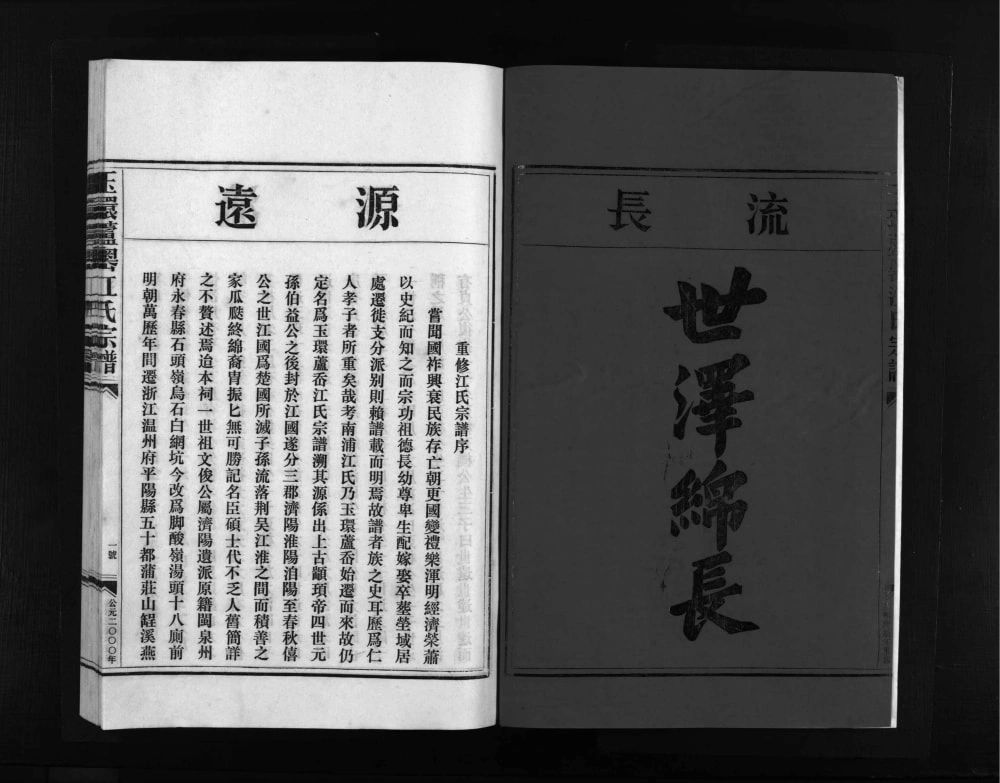 流長
世澤綿長
源遠
重修江氏宗譜序
嘗聞國祚興衰民族存亡朝更國變禮樂渾明經濟榮蕭
以史紀而知之而宗功祖德長幼尊卑生配嫁娶卒塟塋域居
處遷徙支分派别則賴譜載而明焉故譜者族之史耳歷爲仁
人孝子者所重矣哉考南浦江氏乃玉環蘆岙始遷而來故仍
定名爲玉環蘆岙江氏宗譜溯其源係出上古顓頊帝四世元
孫伯益公之後封於江國遂分三郡濟陽淮陽洎陽至春秋僖
公之世江國爲楚國所滅子孫流落荆吴江淮之間而積善之
家瓜瓞終綿裔胄振匕無可勝記名臣碩士代不乏人舊簡詳
之不贅述焉迨本祠一世祖文俊公屬濟陽遺派原籍閩泉州
府永春縣石頭嶺烏石白網坑今改爲脚酸嶺湯頭十八廁前
明朝萬歷年間遷浙江温州府平陽縣五十都蒲莊山 溪燕
玉環蘆岙江氏宗譜
一號
公元二〇〇〇年